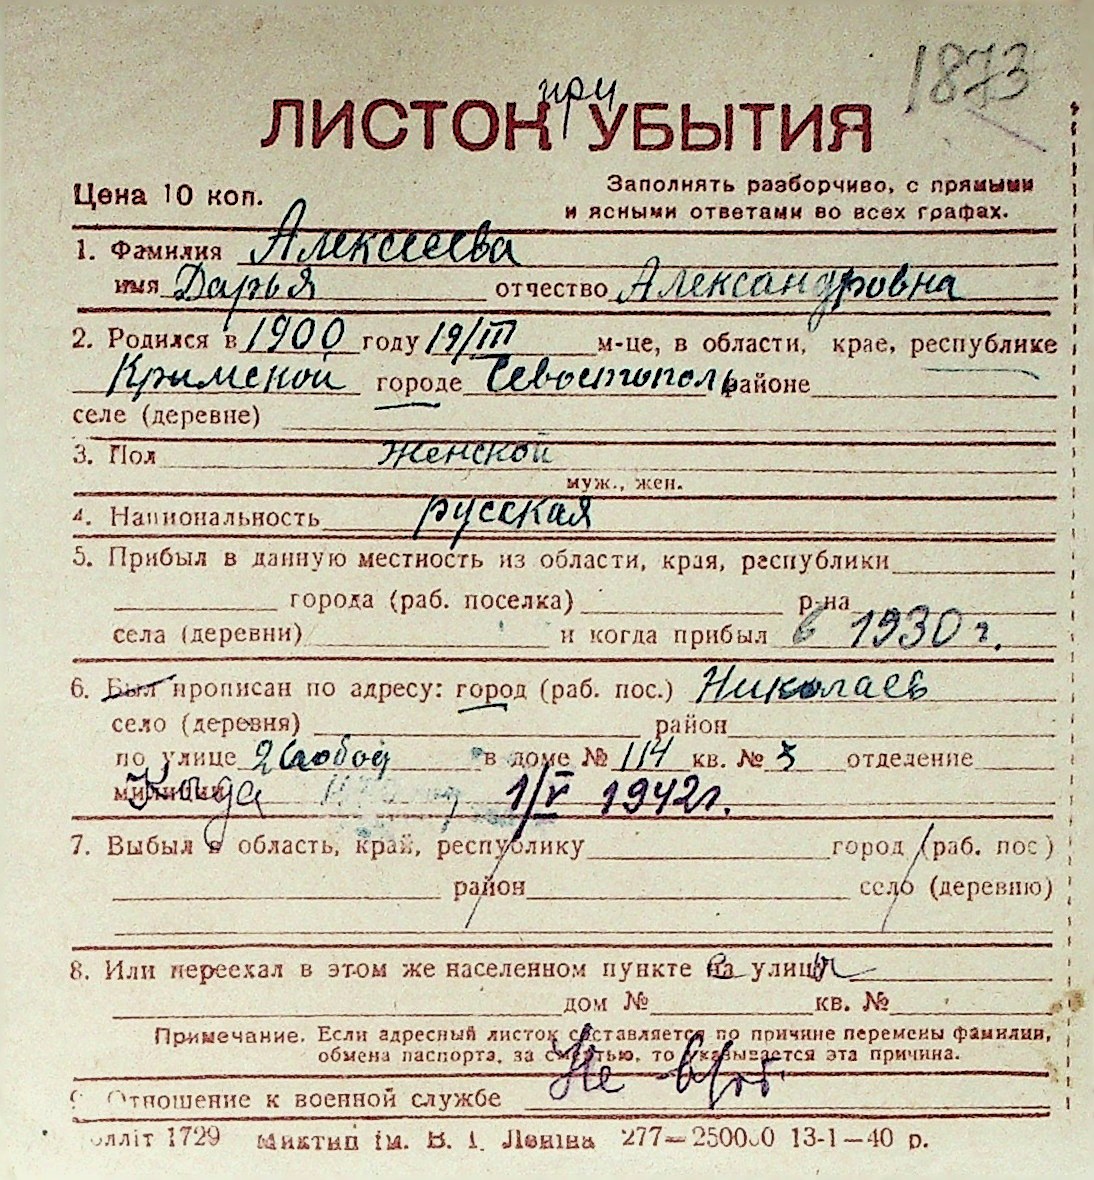 1873
при
ЛИСТОК УБЫТИЯ
Цена 10 коп.
Заполнять разборчиво, с прямыми
и ясными ответами во всех графах.
1. Фамилия Алексеева
имя Дарья отчество Александровна
2. Родился в 1900 году 19/III м-це, в области, крае, республике
Крымской городе Севостополь районе
селе (деревне)
3. Пол женской
муж., жен.
4. Национальность русская
5. Прибыл в данную местность из области, края, республики
города (раб. поселка) р-на
села (деревни) и когда прибыл в 1930 г.
6. Был прописан по адресу: город (раб. пос.) Николаев
село (деревня) район
по улице 2 Слобод в доме № 114 кв. № 3 отделение
милиции Когда 1/V 1942 г.
7. Выбыл в область, край, республику город (раб. пос)
район село (деревню)
8. Или переехал в этом же населенном пункте на улицу
дом № кв. №
Примечание. Если адресный листок составляется по причине перемены фамилии,
обмена паспорта, за смертью, то указывается эта причина.
Не
9. Отношение к военной службе
олліт 1729 Миктип ім. В. І. Леніна 277—250000 13-1—40 р.